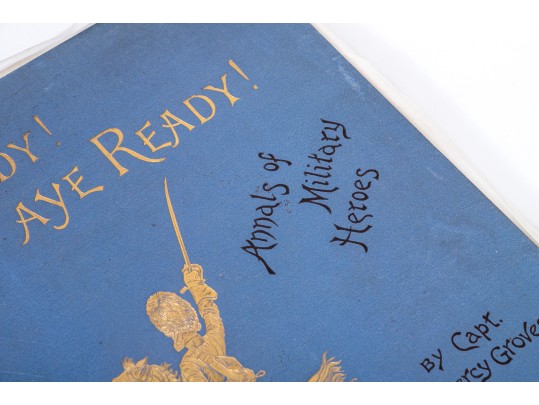 DY!
AYE READY!
Annals of
Military
Heroes
By Capt.
ercy Grove